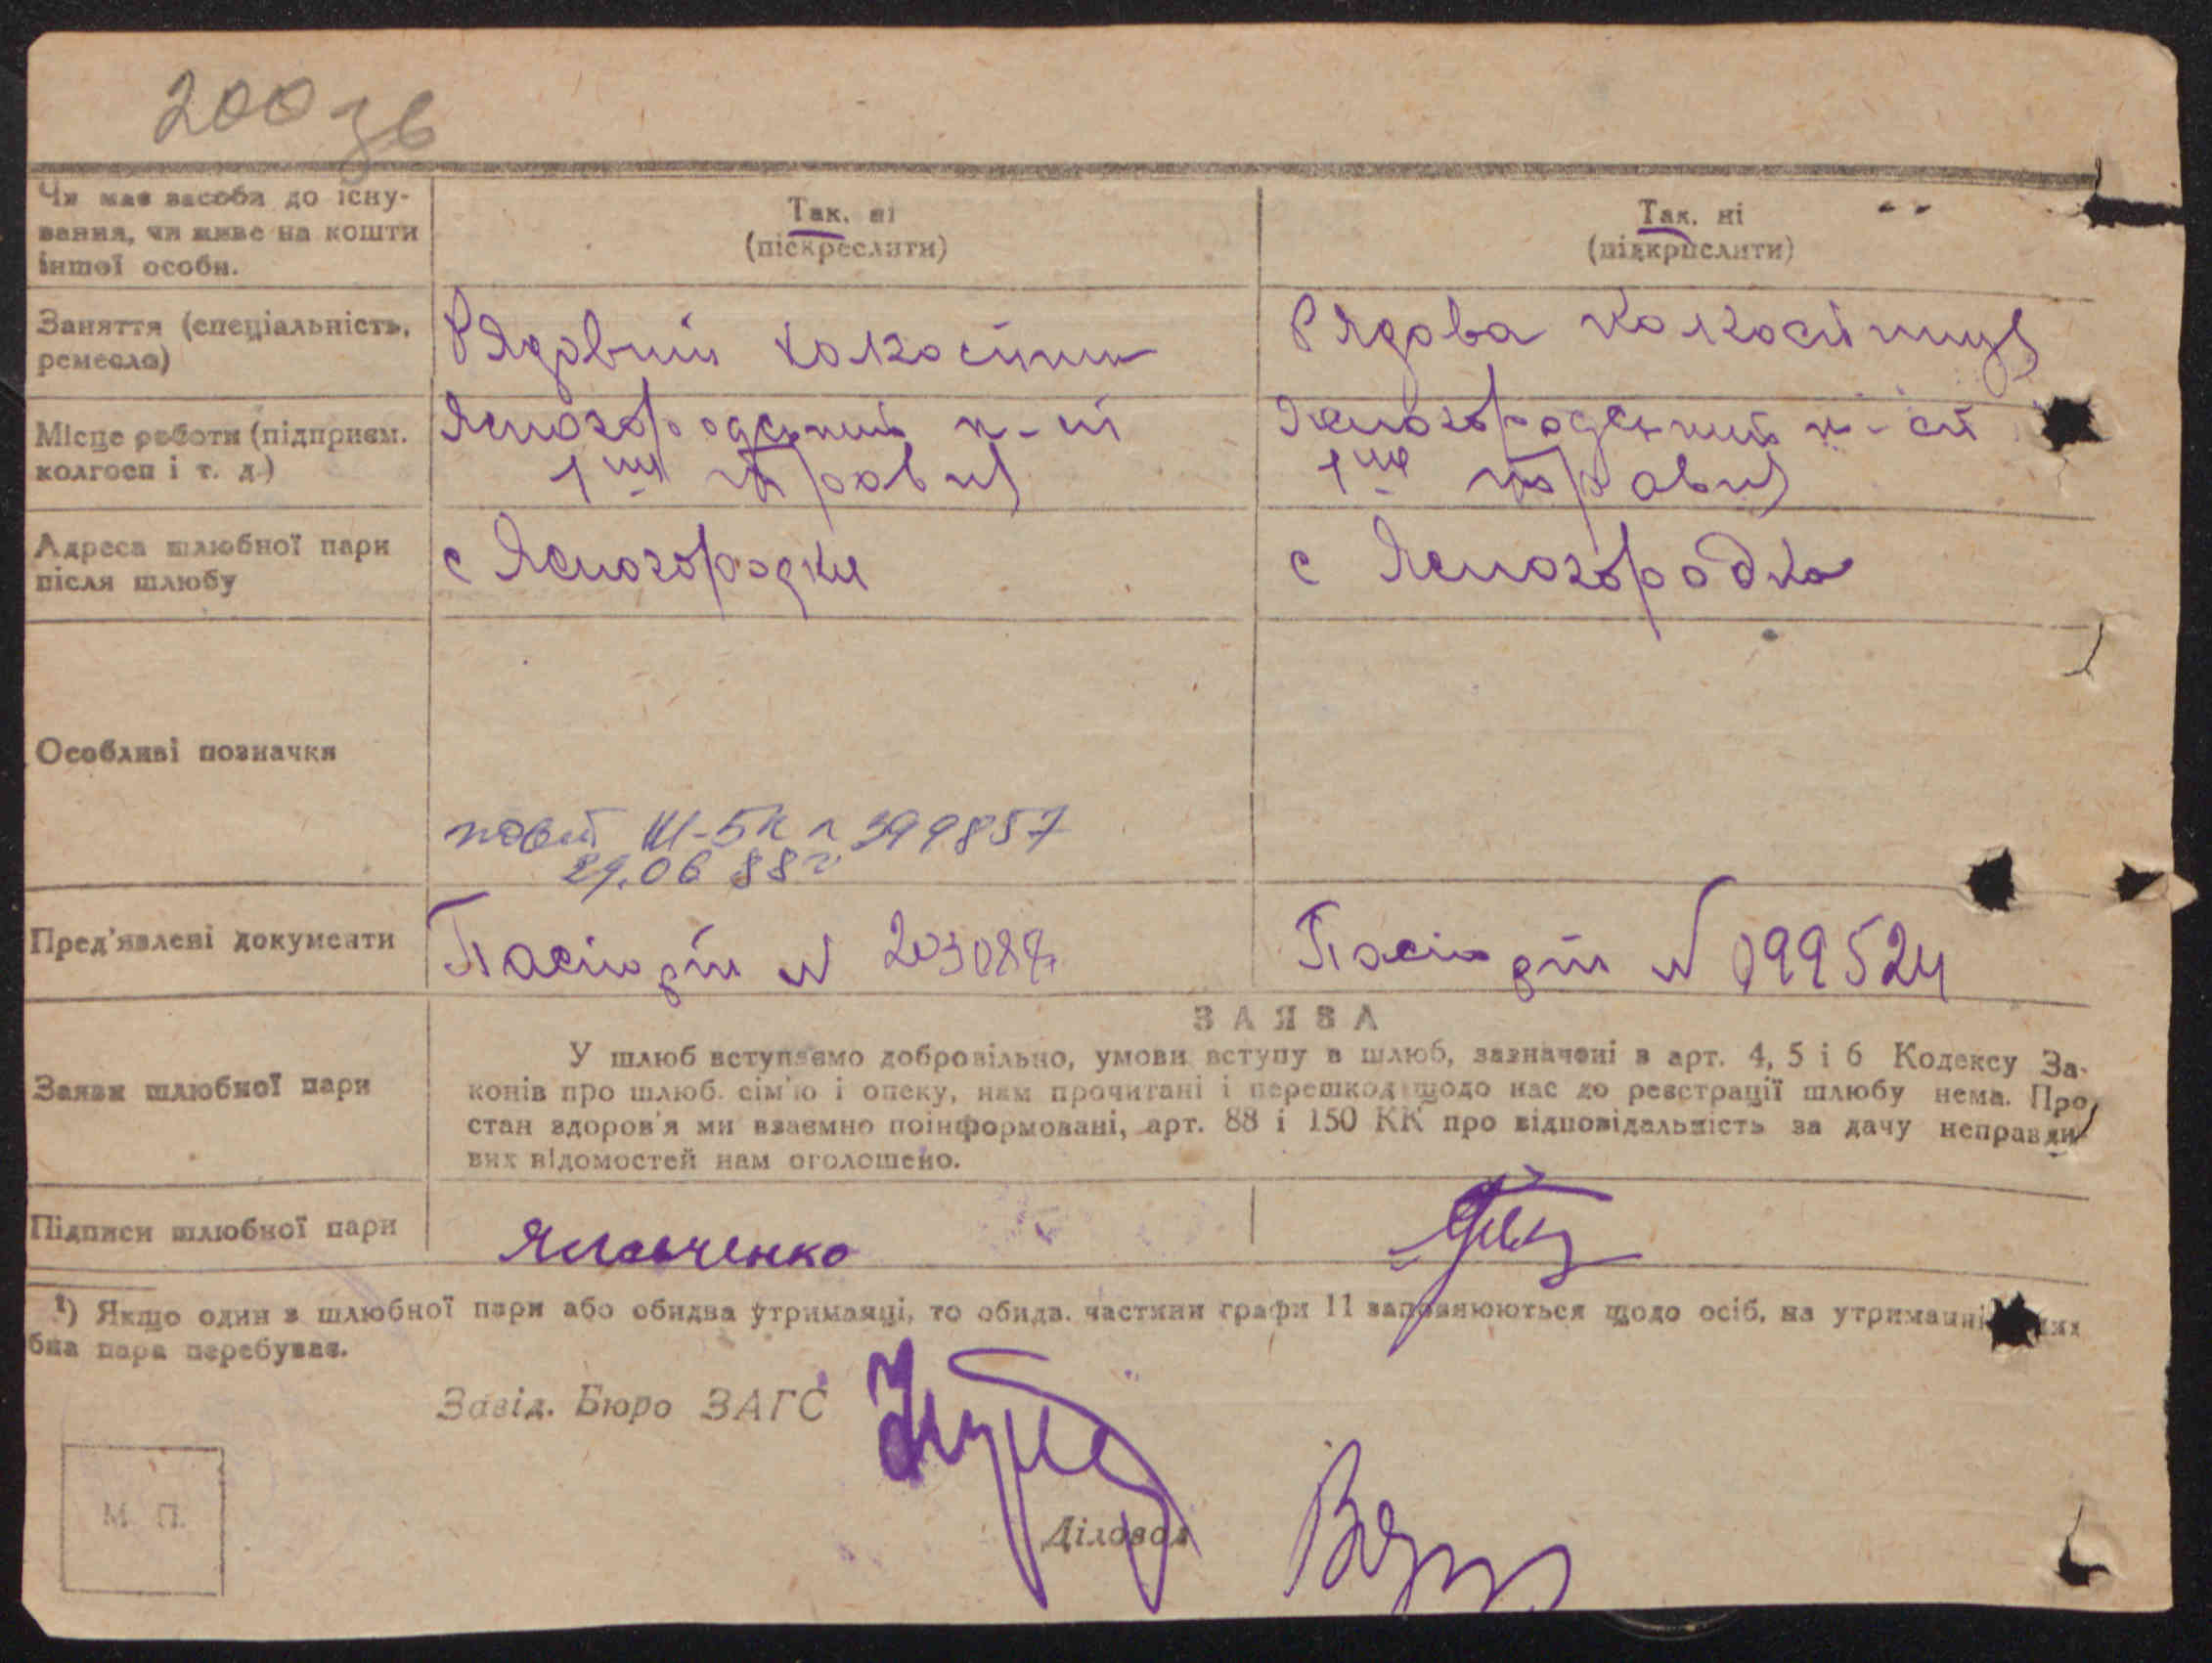 200 зв
Чи має засоби до існу-
вання, чи живе на кошти
іншої особи.
Так, ні
(підкреслити)
Так, ні
(підкрислити)
Заняття (спеціальність,
ремесло)
Рядовий колхосник
Рядова колхосниця
Місце роботи (підприєм.
колгосп і т. д.)
Ясногородський к-сп
1ше травня
Ясногородський к-сп
1ше травня
Адреса шлюбної пари
після шлюбу
с Ясногородка
с Ясногородка
Особливі позначки
повт III-БК 399857
29.06 88г
Пред'явлені документи
Паспорт N
Паспорт N 099524
ЗАЯВА
Заяви шлюбної пари
У шлюб вступаємо добровільно, умови вступу в шлюб, зазначені в арт. 4, 5 і 6 Кодексу За-
конів про шлюб. сім'ю і опеку, нам прочитані і перешкод щодо нас до реєстрації шлюбу нема. Про
стан здоров'я ми взаємно поінформовані, арт. 88 і 150 КК про відповідальність за дачу неправди-
вих відомостей нам оголошено.
Підписи шлюбної пари
¹) Якщо один з шлюбної пари або обидва утриманці, то обидв. частини графи 11 заповнюються щодо осіб, на утриманні яких
бна пара перебуває.
Завід. Бюро ЗАГС
М. П.
Діловод